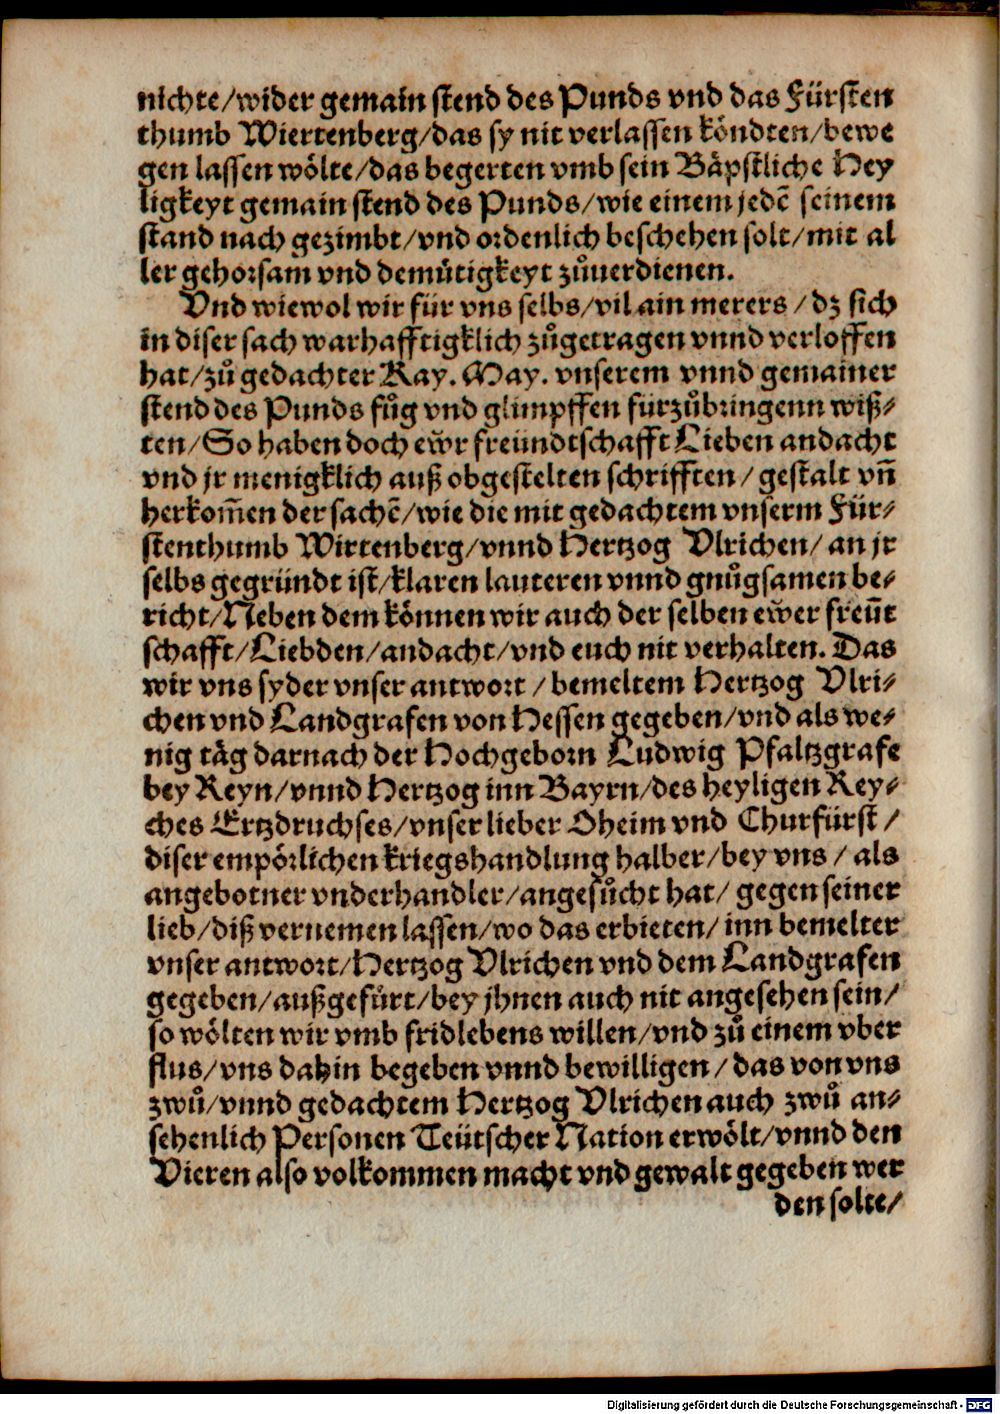 nichte/wider gemain stend des Punds vnd das Fürsten
thumb Wiertenberg/das sy nit verlassen köndten/bewe
gen lassen wölte/das begerten vmb sein Bäpstliche Hey
ligkeyt gemain stend des Punds/wie einem jedē seinem
stand nach gezimbt/vnd ordenlich beschehen solt/mit al
ler gehorsam vnd demůtigkeyt zůuerdienen.
Vnd wiewol wir für vns selbs/vil ain merers/dz sich
in diser sach warhafftigklich zůgetragen vnnd verloffen
hat/zů gedachter Kay. May. vnserem vnnd gemainer
stend des Punds fůg vnd glimpffen fürzůbringenn wiß⸗
ten/So haben doch ewr̃ freündtschafft Lieben andacht
vnd jr menigklich auß obgestelten schrifften/gestalt vn̄
herkom̄en der sachē/wie die mit gedachtem vnserm Für⸗
stenthumb Wirtenberg/vnnd Hertzog Vlrichen/an jr
selbs gegründt ist/klaren lauteren vnnd gnůgsamen be⸗
richt/Neben dem können wir auch der selben ew̃er freün̄t
schafft/Liebden/andacht/vnd euch nit verhalten. Das
wir vns syder vnser antwort/bemeltem Hertzog Vlri⸗
chen vnd Landgrafen von Hessen gegeben/vnd als we⸗
nig täg darnach der Hochgeborn Ludwig Pfaltzgrafe
bey Reyn/vnnd Hertzog inn Bayrn/des heyligen Rey⸗
ches Ertzdruchses/vnser lieber Oheim vnd Churfürst/
diser empörlichen kriegshandlung halber/bey vns/als
angebotner vnderhandler/angesůcht hat/gegen seiner
lieb/diß vernemen lassen/wo das erbieten/inn bemelter
vnser antwort/Hertzog Vlrichen vnd dem Landgrafen
gegeben/außgefürt/bey jhnen auch nit angesehen sein/
so wölten wir vmb fridlebens willen/vnd zů einem vber
flus/vns dahin begeben vnnd bewilligen/das von vns
zwů/vnnd gedachtem Hertzog Vlrichen auch zwů an⸗
sehenlich Personen Teütscher Nation erwölt/vnnd den
Vieren also volkommen macht vnd gewalt gegeben wer
den solte/
Digitalisierung gefördert durch die Deutsche Forschungsgemeinschaft - DFG